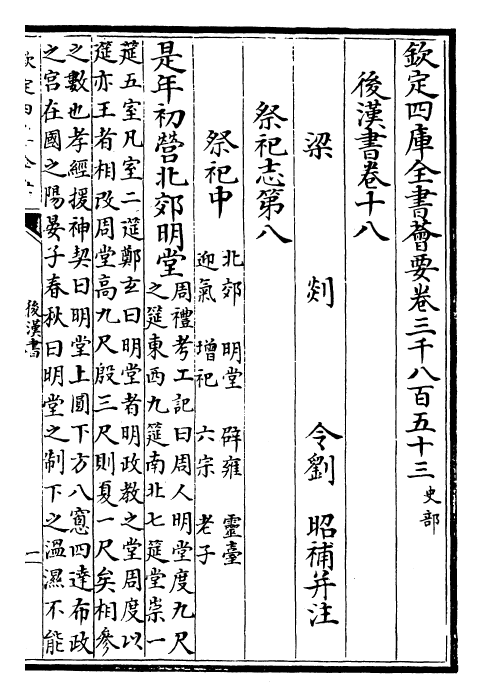 欽定四庫全書薈要卷三千八百五十三 史部
後漢書卷十八
梁 剡 令劉 昭補并注
祭祀志第八
祭祀中 北郊 明堂 辟雍 靈臺
迎氣 增祀 六宗 老子
是年初營北郊明堂 周禮考工記曰周人明堂度九尺
之筵東西九筵南北七筵堂崇一
筵五室凡室二筵鄭玄曰明堂者明政教之堂周度以
筵亦王者相改周堂高九尺殷三尺則夏一尺矣相參
之數也孝經援神契曰明堂上圓下方八窓四達布政
之宮在國之陽晏子春秋曰明堂之制下之溫濕不能
後漢書
一